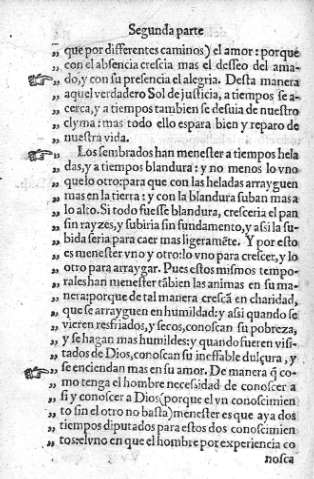 Segunda parte
„ que por differentes caminos) el amor: porque
„ con el absencia crescia mas el desseo del ama-
„ do, y con su presencia el alegria. Desta manera
„ aquel verdadero Sol de justicia, a tiempos se a-
„ cerca, y a tiempos tambien se desuia de nuestro
„ clyma: mas todo ello es para bien y reparo de
„ nuestra vida.
„ Los sembrados han menester a tiempos hela
„ das, y a tiempos blandura: y no menos lo vno
„ que lo otro: para que con las heladas arrayguen
„ mas en la tierra: y con la blandura suban mas a
„ lo alto. Si todo fuesse blandura, cresceria el pan
„ sin rayzes, y subiria sin fundamento, y assi la su-
„ bida seria para caer mas ligeramẽte. Y por esto
„ es menester vno y otro: lo vno para crescer, y lo
„ otro para arraygar. Pues estos mismos tempo-
„ rales han menester tãbien las animas en su ma-
„ nera: porque de tal manera crescã en charidad,
„ que se arrayguen en humildad: y assi quando se
„ vieren resfriados, y secos, conoscan su pobreza,
„ y se hagan mas humildes: y quando fueren visi-
„ tados de Dios, conoscan su ineffable dulçura, y
„ se enciendan mas en su amor. De manera q̃ co-
„ mo tenga el hombre necesidad de conoscer a
„ si y conoscer a Dios (porque el vn conoscimien
„ to sin el otro no basta) menester es que aya dos
„ tiempos diputados para estos dos conoscimien
„ tos: el vno en que el hombre por experiencia co
nosca